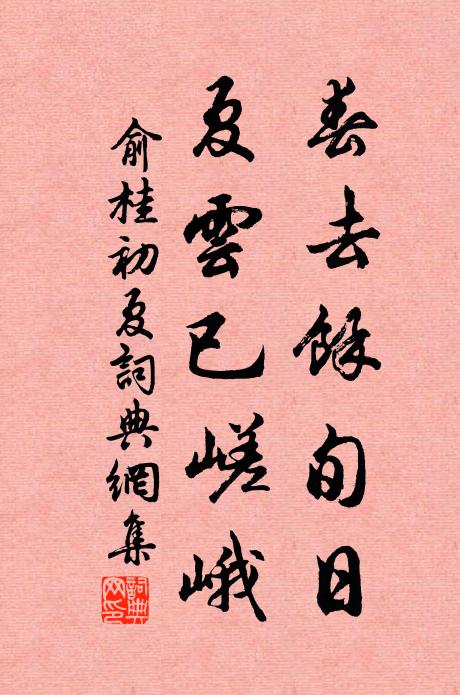 春去餘旬日
夏雲已嵯峨
俞桂初夏詞典網集
詞典網印